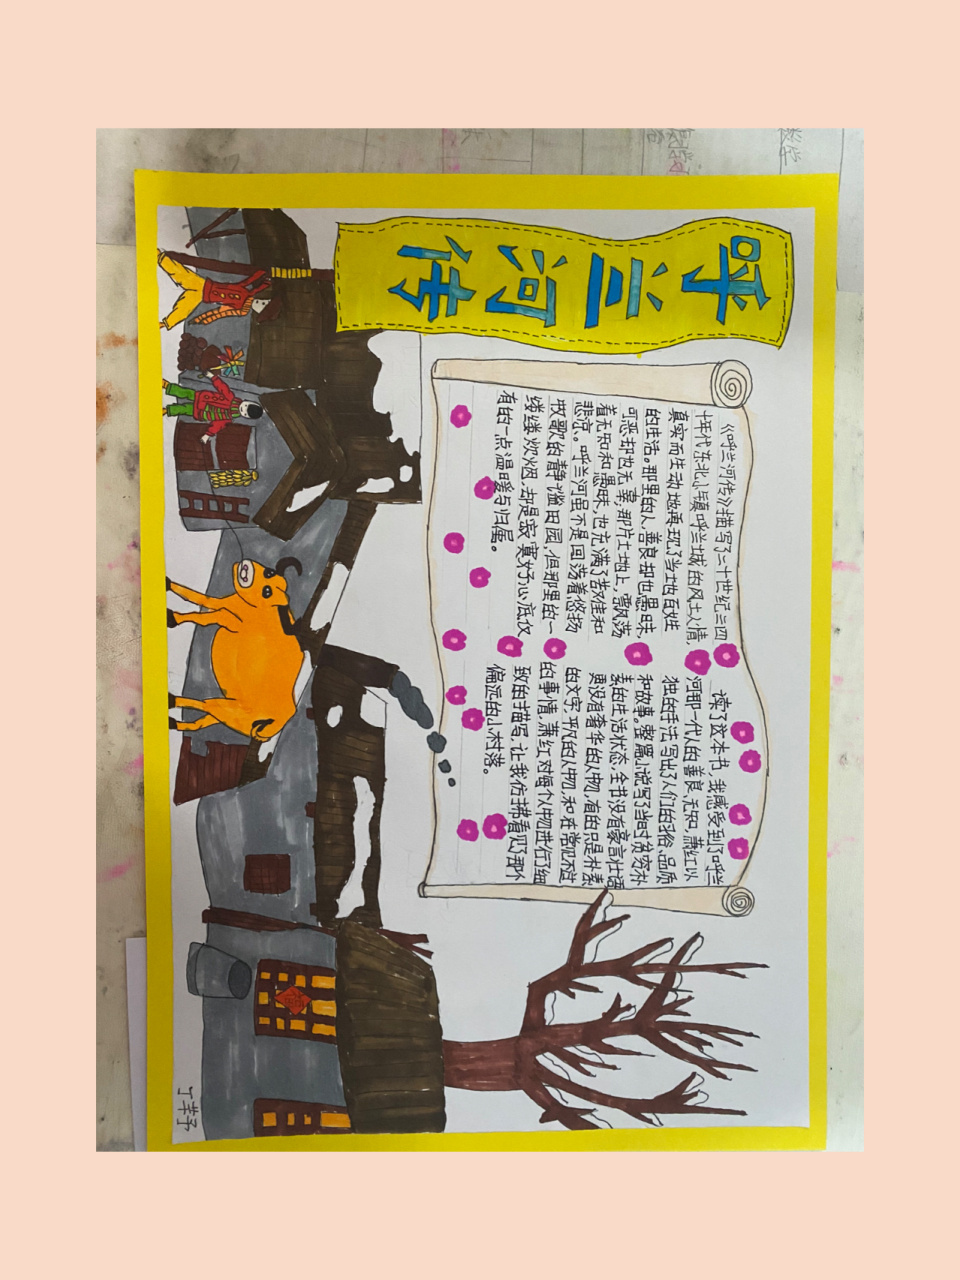 呼兰河传
《呼兰河传》描写了二十世纪三四
十年代东北小镇呼兰城的风土人情,
真实而生动地再现了当地百姓
的生活。那里的人,善良却也愚昧,
可恶却也无辜,那片土地上,飘荡
着无知和愚昧,也充满了苦难和
悲凉。呼兰河虽不是回荡着悠扬
牧歌的静谧田园,但那里的一
缕缕炊烟,却是寂寞心底仅
有的一点温暖与归属。
读了这本书,我感受到了呼兰
河那一代人的善良、无知,萧红以
独的手法,写出了人们的习俗、品质
和故事。整篇小说写了当时贫穷朴
素的生活状态,全书没有豪言壮语
更没有奢华的人物,有的只是朴素
的文字,平凡的人物,和在常见不过
的事情,萧红对每个人物进行了细
致的描写,让我仿拂看见了那个
偏远的小村落。
丁芊予